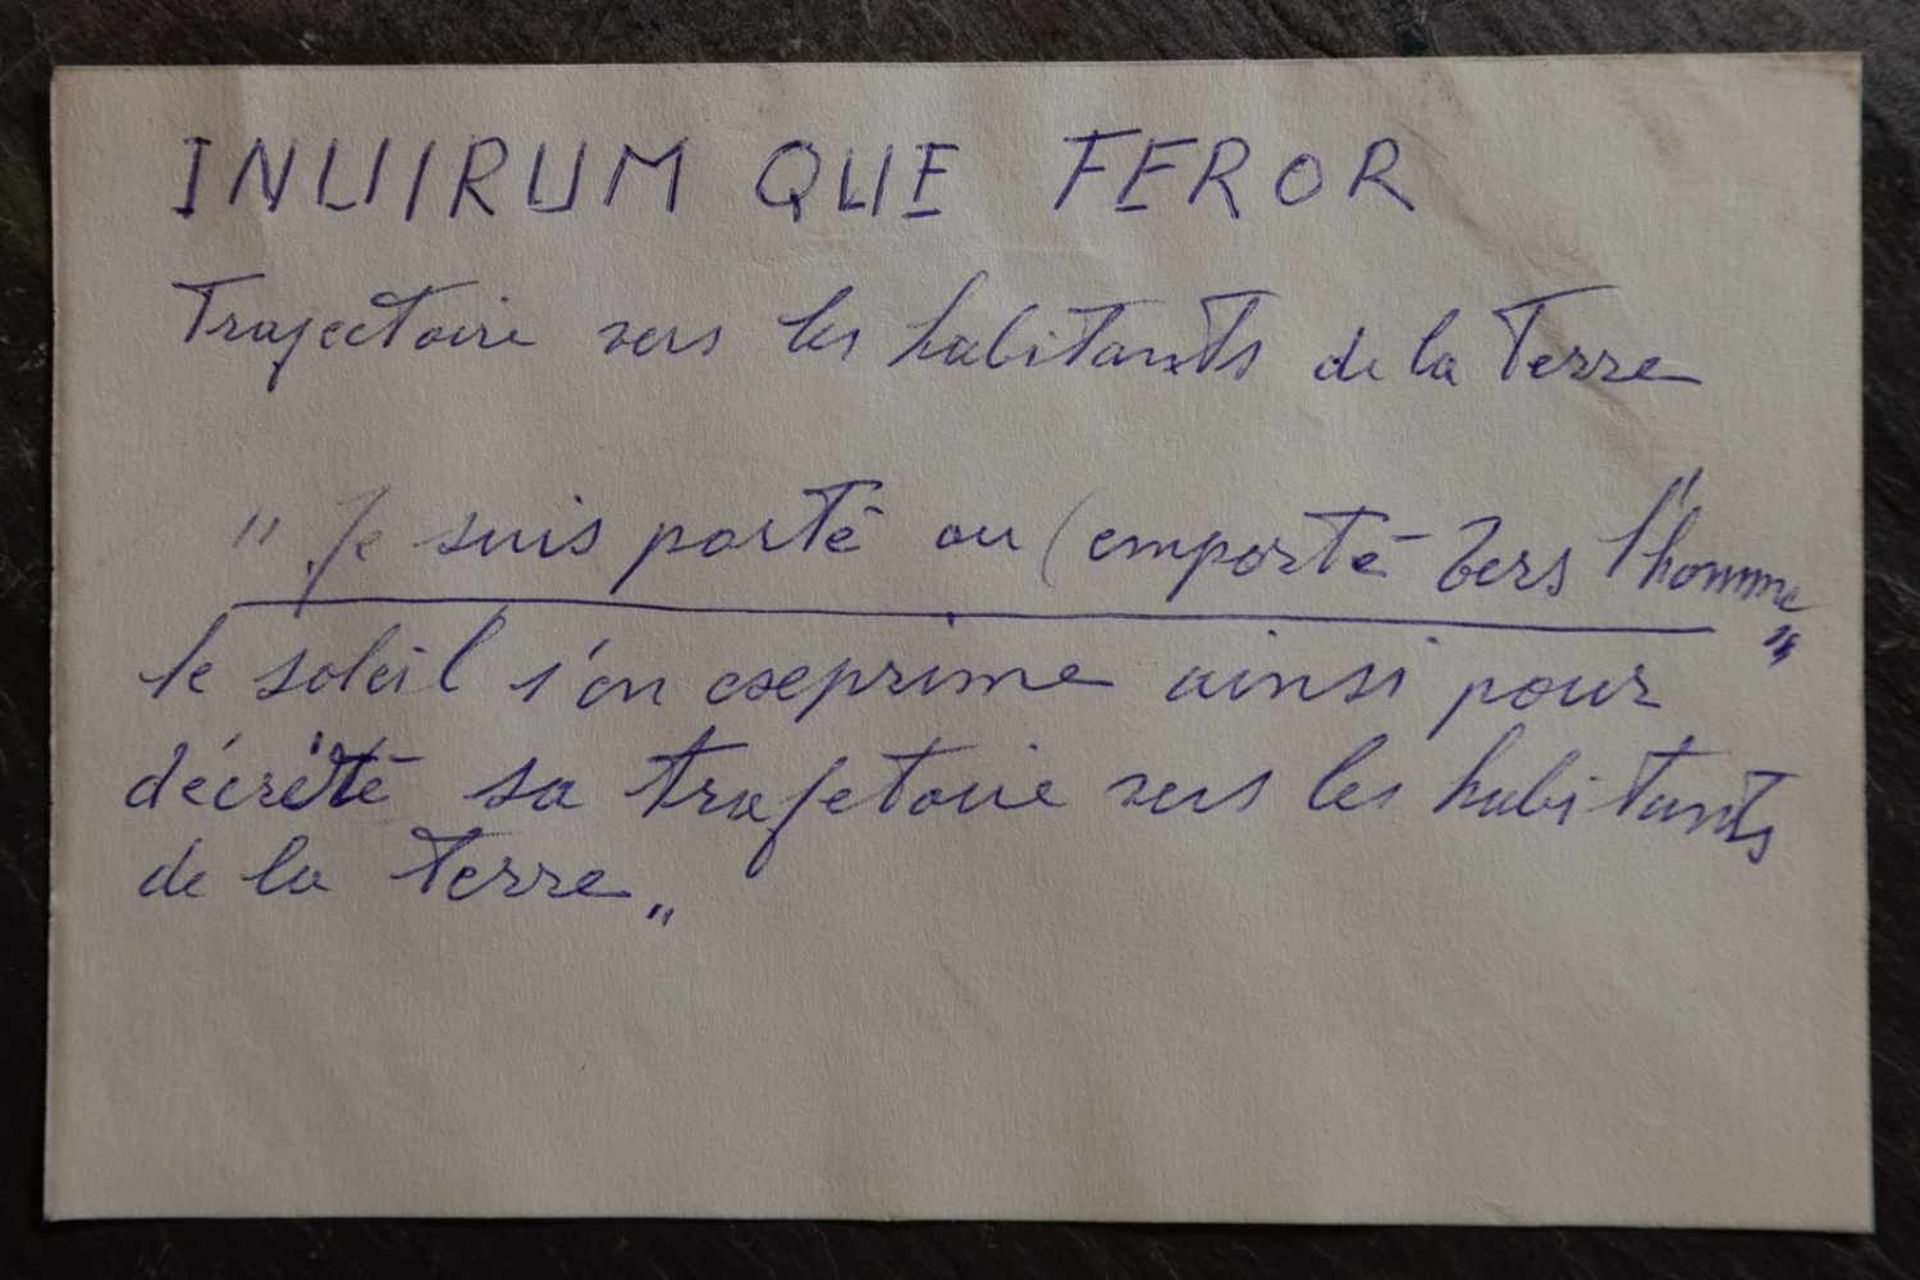 INUIRUM QUE FEROR
Trajectoire vers les habitants de la Terre
" Je suis porté ou (emporté vers l'homme "
le soleil s'en exeprime ainsi pour
décrété sa trajetoire vers les habitants
de la terre "